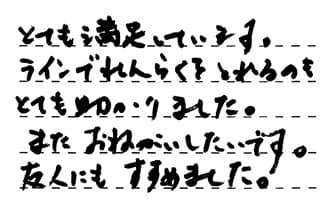 とても満足しています。
ラインでれんらくをとれるのも
とても助かりました。
また おねがいしたいです。
友人にも すすめました。